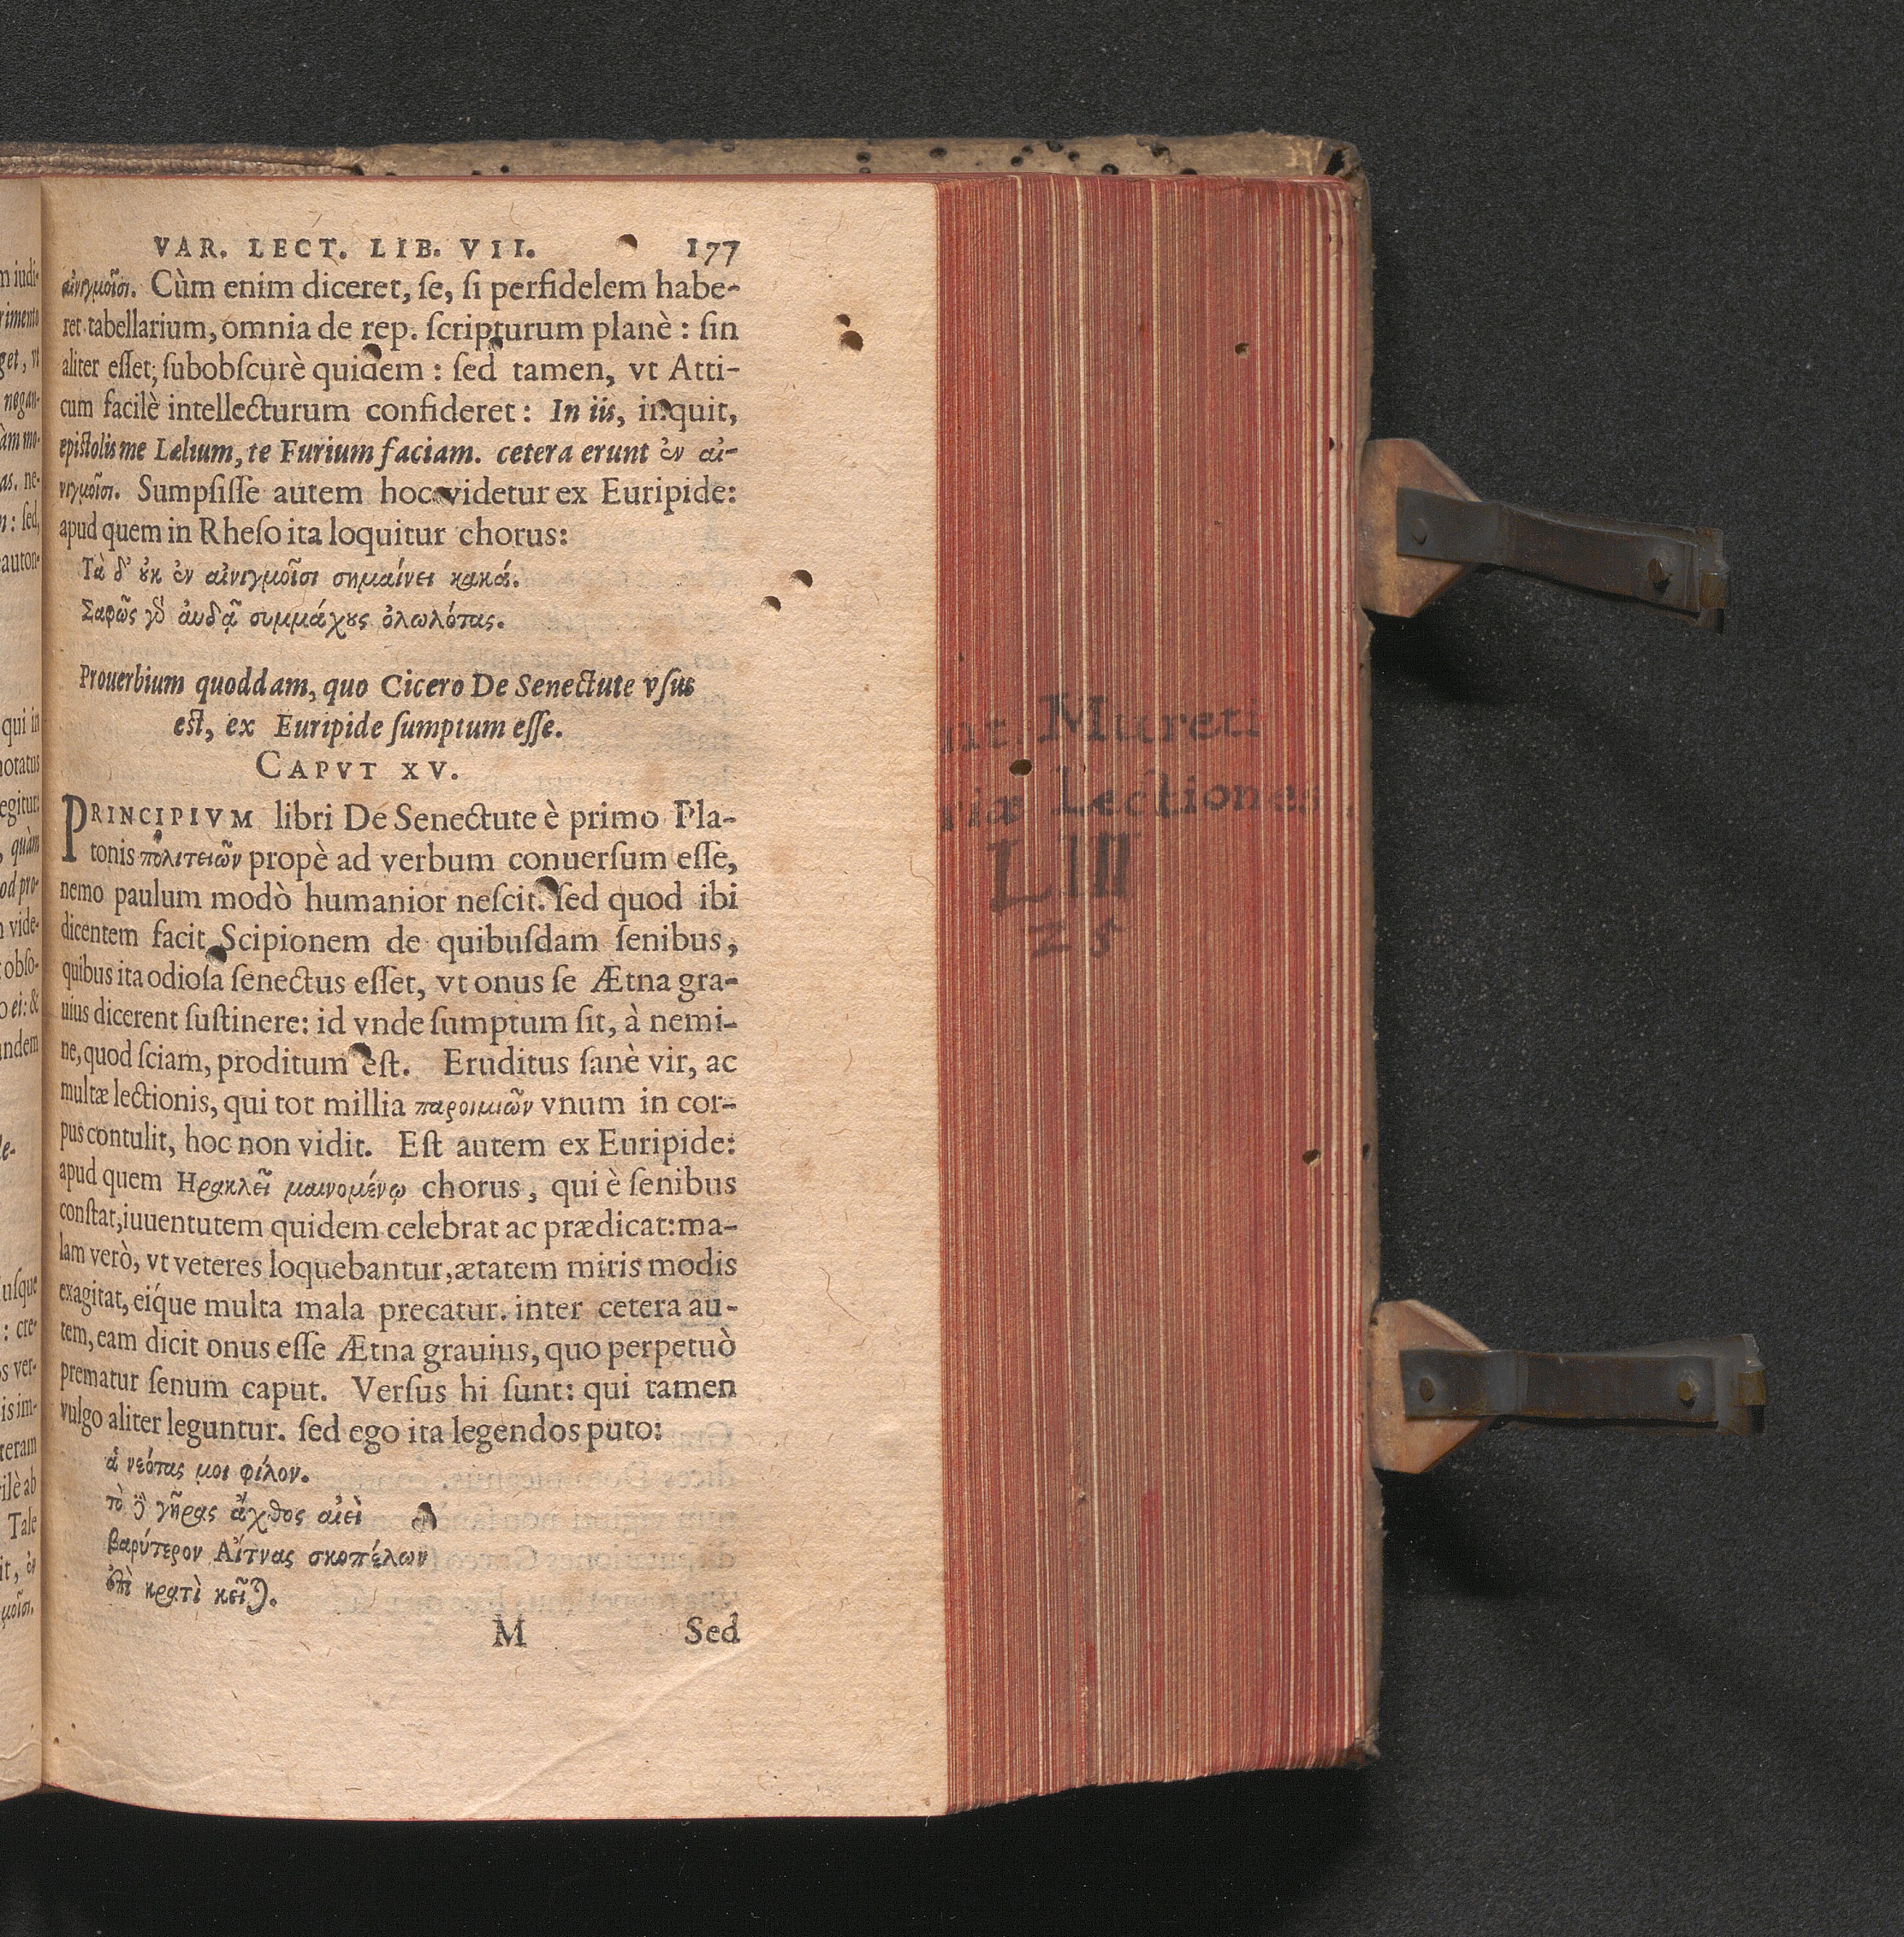 VAR. LECT. LIB. VII. 177
αἰνιγμοῖσι. Cùm enim diceret, ſe, ſi perfidelem habe-
ret tabellarium, omnia de rep. ſcripturum planè : ſin
aliter eſſet, ſubobſcurè quidem : ſed tamen, vt Atti-
cum facilè intellecturum confideret : In iis, inquit,
epiſtolis me Lælium, te Furium faciam. cetera erunt ἐν αἰ-
νιγμοῖσι. Sumpſiſſe autem hoc videtur ex Euripide:
apud quem in Rheſo ita loquitur chorus:
Τὰ δ' ȣκ ἐν αἰνιγμοῖσι σημαίνει κακά.
Σαφῶς γδ ἀυδᾷ συμμάχȣς ὀλωλότας.
Prouerbium quoddam, quo Cicero De Senectute vſus
eſt, ex Euripide ſumptum eſſe.
CAPVT XV.
PRINCIPIVM libri De Senectute è primo Pla-
tonis πολιτειῶν propè ad verbum conuerſum eſſe,
nemo paulum modò humanior neſcit. ſed quod ibi
dicentem facit Scipionem de quibuſdam ſenibus,
quibus ita odioſa ſenectus eſſet, vt onus ſe Ætna gra-
uius dicerent ſuſtinere: id vnde ſumptum ſit, à nemi-
ne, quod ſciam, proditum eſt. Eruditus ſanè vir, ac
multæ lectionis, qui tot millia παροιμιῶν vnum in cor-
pus contulit, hoc non vidit. Eſt autem ex Euripide:
apud quem Ηρακλεῖ μαινομένῳ chorus, qui è ſenibus
conſtat, iuuentutem quidem celebrat ac prædicat: ma-
lam verò, vt veteres loquebantur, ætatem miris modis
exagitat, eíque multa mala precatur. inter cetera au-
tem, eam dicit onus eſſe Ætna grauius, quo perpetuò
prematur ſenum caput. Verſus hi ſunt: qui tamen
vulgo aliter leguntur. ſed ego ita legendos puto:
ἁ νεότας μοι φίλον.
τὸ δὲ γῆρας ἄχθος αἰεὶ
βαρύτερον Αἴτνας σκοπέλων
ἐπὶ κρατὶ κεῖται.
M Sed
nt. Mureti
riæ Lectiones.
LIII
25